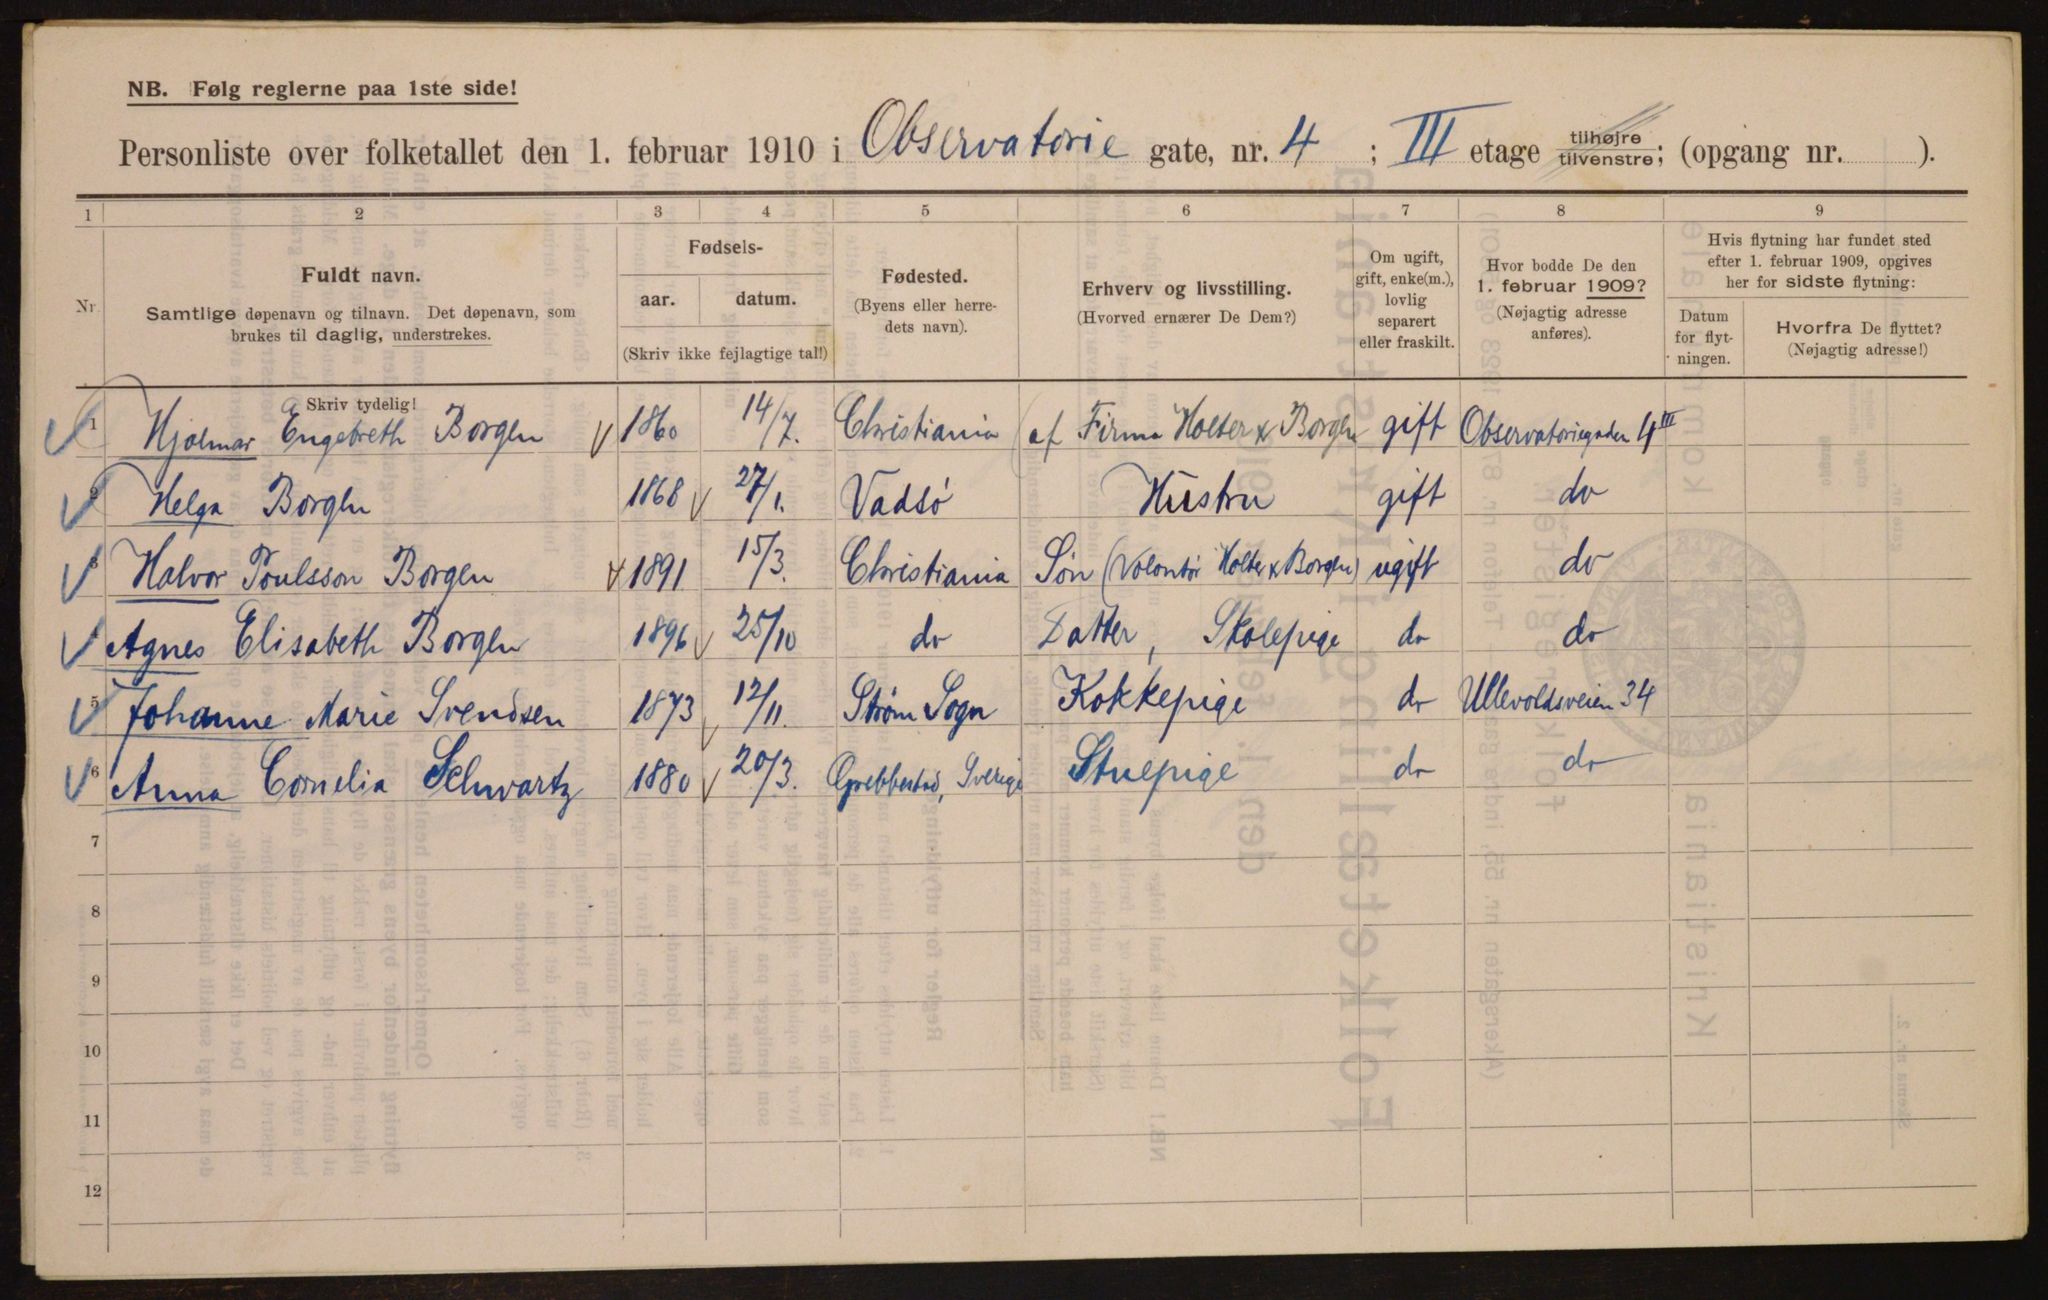 NB. Følg reglerne paa 1ste side!
Personliste over folketallet den 1. februar 1910 i Observatorie gate, nr. 4 ; III etage tilhøjre tilvenstre; (opgang nr. ).
1 2 3 4 5 6 7 8 9
Nr.
Fuldt navn.
Samtlige døpenavn og tilnavn. Det døpenavn, som
brukes til daglig, understrekes.
Fødsels-
aar. datum.
(Skriv ikke fejlagtige tal!)
Fødested.
(Byens eller herre-
dets navn).
Erhverv og livsstilling.
(Hvorved ernærer De Dem?)
Om ugift,
gift, enke(m.),
lovlig
separert
eller fraskilt.
Hvor bodde De den
1. februar 1909?
(Nøjagtig adresse
anføres).
Hvis flytning har fundet sted
efter 1. februar 1909, opgives
her for sidste flytning:
Datum
for flyt-
ningen.
Hvorfra De flyttet?
(Nøjagtig adresse!)
Skriv tydelig!
1 Hjalmar Engebreth Borgen 1860 14/7. Christiania (af Firma Holter & Borgen gift Observatoriegaden 4 III
2 Helga Borgen 1868 27/1. Vadsö Hustru gift do
3 Halvor Poulsson Borgen 1891 15/3. Christiania Søn (Volontör Holter & Borgen) ugift do
Agnes Elisabeth Borgen 1896 25/10 do Datter, Skolepige do do
5 Johanne Marie Svendsen 1873 12/11. Strøm Sogn Kokkepige do Ullevoldsveien 34
6 Anna Cornelia Schwartz 1880 20/3. Grebbestad, Sverige Stuepige do do
7
8
9
10
11
12